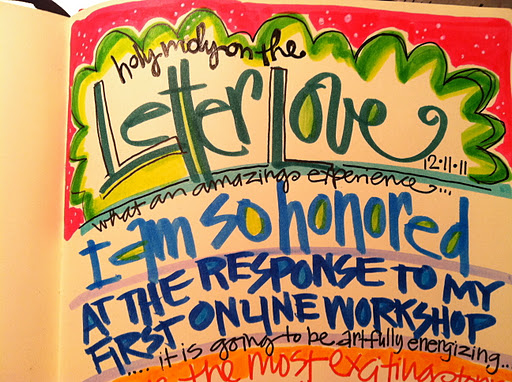 holy moly on the
Letter Love
12.11.11
what an amazing experience...
I am so honored
AT THE RESPONSE TO MY
FIRST ONLINE WORKSHOP
.... it is going to be artfully energizing..
the most exciting